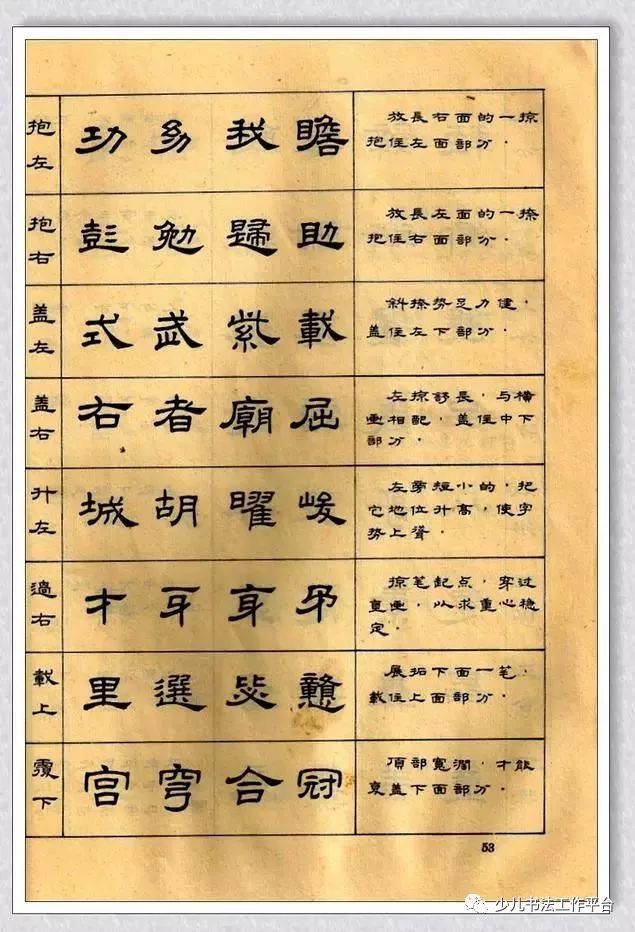 抱左 功 幼 我 瞻
放長右面的一掠
抱住左面部分.
抱右 彭 勉 歸 助
放長左面的一捺
抱住右面部分.
盖左 式 武 紫 載
斜捺势足力健,
盖住左下部分.
盖右 右 者 廟 屈
左掠舒長,与横
画相配,盖住中下
部分.
升左 城 胡 曜 峻
左旁短小的,把
它地位升高,使字
势上聳.
過右 才 牙
掠笔起点,穿过
直画,以求重心稳
定.
載上 里 選 毖 戇
展拓下面一笔,
載住上面部分.
覆下 宫 穹 合 冠
頂部寬濶,才能
覆盖下面部分.
53
少儿书法工作平台